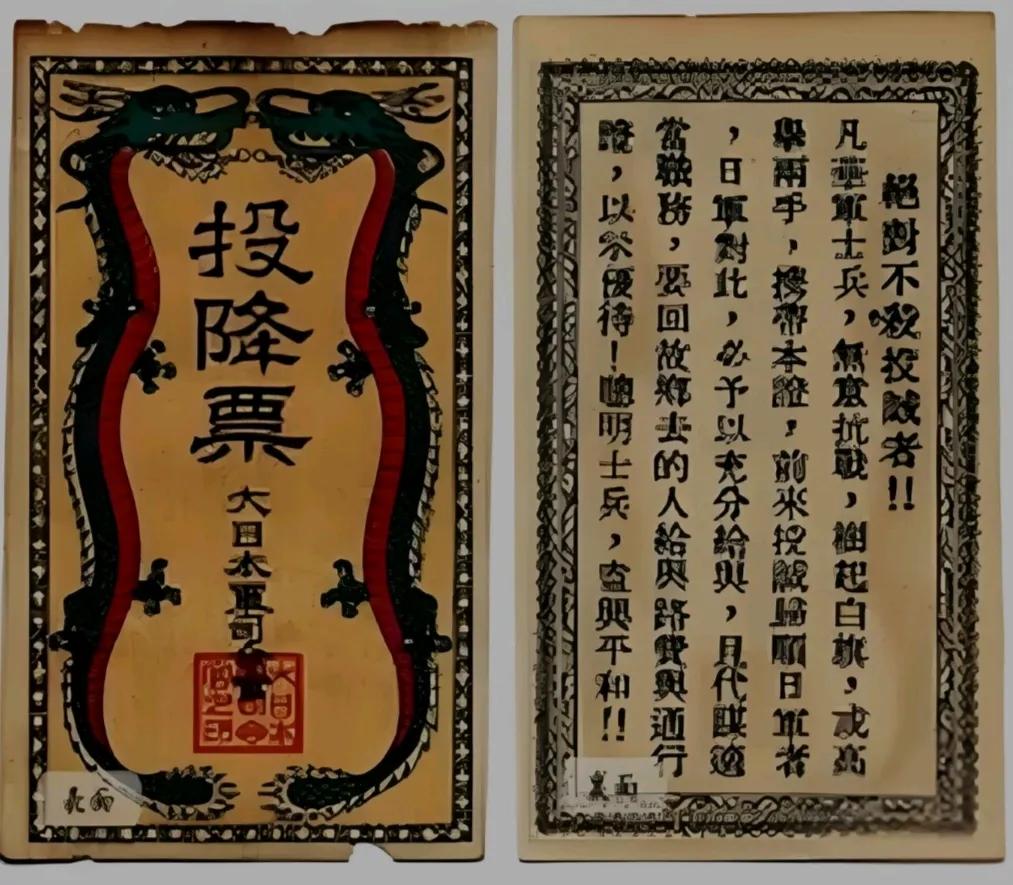 投降票
大日本軍司
絕對不殺投誠者!!
凡華軍士兵，無意抗戰，起白旗，或高
舉兩手，携帶本證，前來投誠歸順日軍者
，日軍對此，必予以充分給與，且代謀適
當職務，要回故鄉去的人給與路費與通行
證，以示優待！聰明士兵，興平和!!